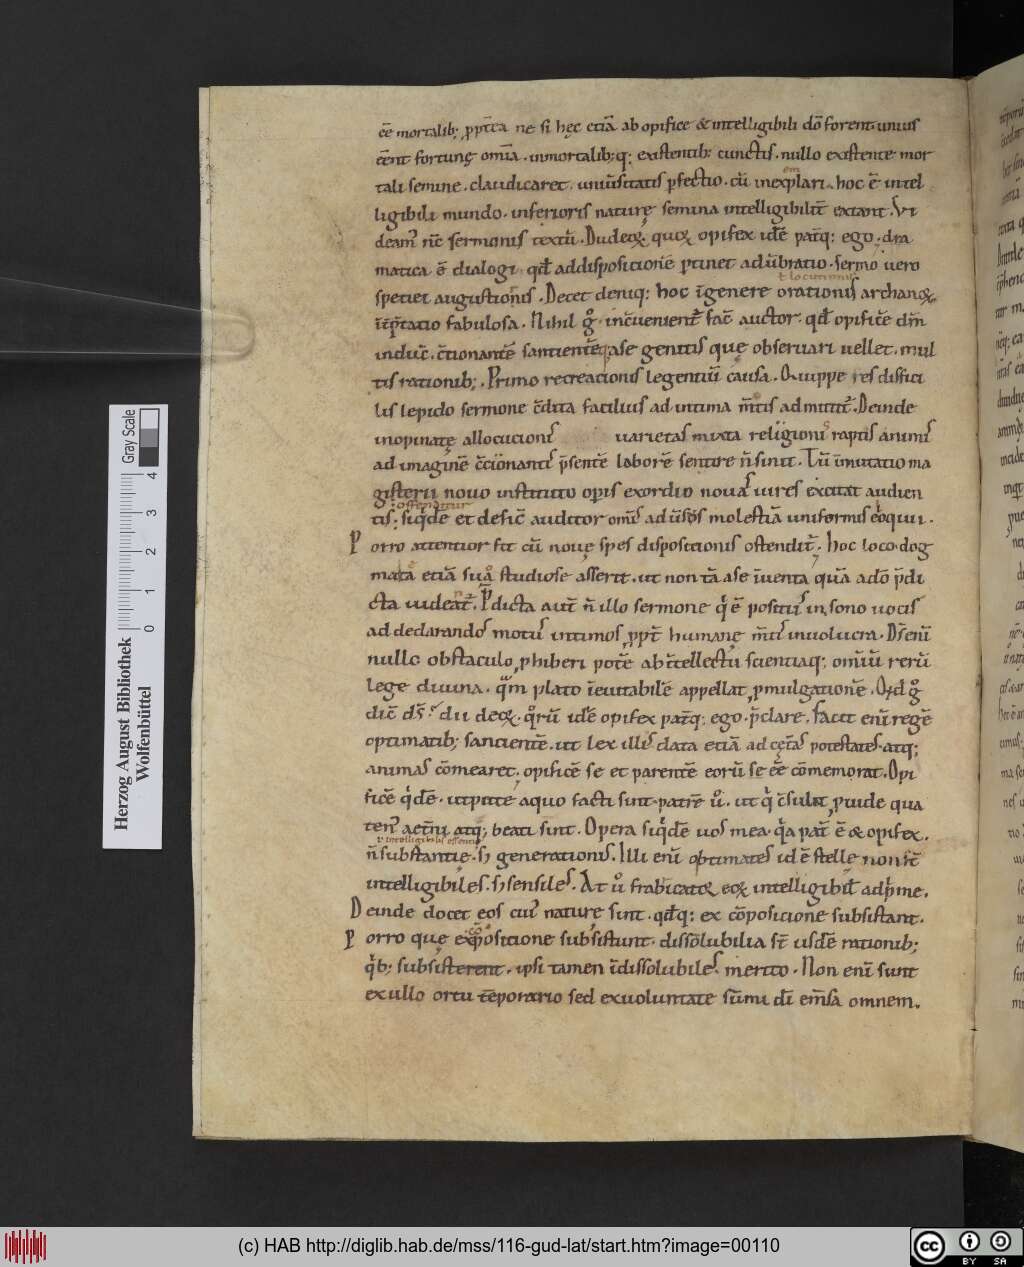 c̄e mortalib; ppt̄ea ne si hęc etiā ab opifice & intelligibili dō forent unius
c̄ent fortunę om̄ia . inmortalib;q: existentib; cunctis . nullo existente mor
tali semine . claudicaret . uniūsitatis pfectio . cū inexplari . hoc ē intel
em
ligibili mundo . inferioris naturę semina intelligibiliū extant . Vi
deam' nc̄ sermonis textū . Dii deoꝝ quoꝝ opifex idē pat̄q: ego . dra
matica ē dialogi . qd̄ addispositionē ptinet adūbratio . sermo uero
ł locutionis
speciei augustioris . Decet deniq: hoc īgenere orationis archanoꝝ
īt̄p̄tatio fabulosa . Nihil g̊ . inc̄uenient̄ fac̄ auctor . qd̄ opificē dm̄
induc̄ . c̄tionantē sancientēq: ase genitis que obseruari uellet . mul
tis rationib; . Primo recreacionis legentiū causa . Quippe res diffici
lis lepido sermone c̄dita facilius ad intima m̄tis admittit̄ . Deinde
inopinatę allocucionis uarietas mixta religioni raptis animis
ad imaginē c̄cionantis p̄sentē laborē sentire n̄ sinit . Tū īmutatio ma
gisterii nouo instituto opis exordio nouas uires excitat audien
offenditur
tis ; siq̇dē et defic̄ auditor om̄is ad ūsos molestiā uniformis eloquii .
Porro attentior fit cū nouę spes dispositionis ostendit̄ . hoc loco dog
mata etiā sua studiose asserit . ut non tā ase īuenta quā adō p̄di
cta uideat̄ . P̄dicta aut̄ n̄ illo sermone q̇ ē positus in sono uocis
ad declarandos motus intimos ppt̄ humanę m̄tis inuolucra . Ds̄ eni
nullo obstaculo phiberi pot̄ē ab īt̄ellectū scientiaq: omīū rerū
lege diuina . quā plato īeuitabilē appellat pmulgationē . Qd̄ g̊
dic̄ ds̄ . dii deoꝝ . qrū idē opifex pat̄q: ego . p̄clare . facit eni regē
optimatib; sancientē . ut lex illis data etiā ad cęt̄as potestates . atq;
animas cōmearet . opificē se et parentē eorū se c̄e cōmemorat . Opi
ficē q̇dē . utpute aquo facti sunt . patrē ů . ut q̇ c̄sulat puide qua
ten' aet̄ni atq; beati sint . Opera siq̇dē uos mea . q̇a pat̄ ē & opifex .
ł intelligibilis essentie
n̄ substantie . s; generationis . Illi eni optimates id ē stelle non st̄
intelligibiles . s; sensiles . At ů frabicatoꝝ eoꝝ intelligibil̄ adp̄me .
Deinde docet eos cui' naturę sint . qd̄q: ex cōpositione subsistant .
Porro quę expositione subsistunt . dissōlubilia st̄ usdē rationib;
q̇b; subsisterent . ipsi tamen īdissolubiles merito . Non eni sunt
exullo ortu tēporario sed exuoluntate sūmi dī em̄sa omnem .
Herzog August Bibliothek
Wolfenbüttel
Gray Scale
0 1 2 3 4
(c) HAB http://diglib.hab.de/mss/116-gud-lat/start.htm?image=00110
cc BY SA